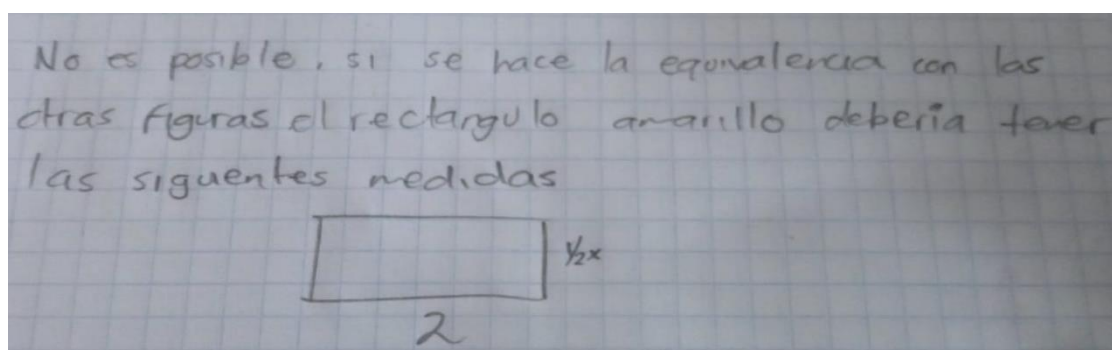 No es posible, si se hace la equivalencia con las
otras figuras el rectangulo amarillo deberia tener
las siguentes medidas
½x
2